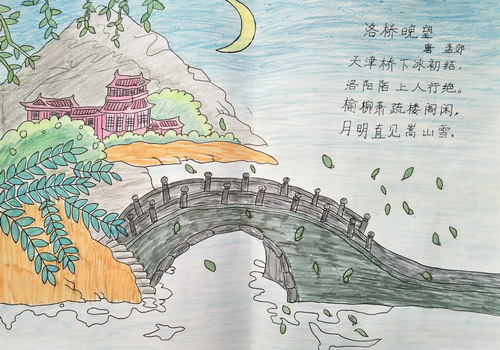 洛桥晚望
唐 孟郊
天津桥下冰初结，
洛阳陌上人行绝。
榆柳萧疏楼阁闲，
月明直见嵩山雪。